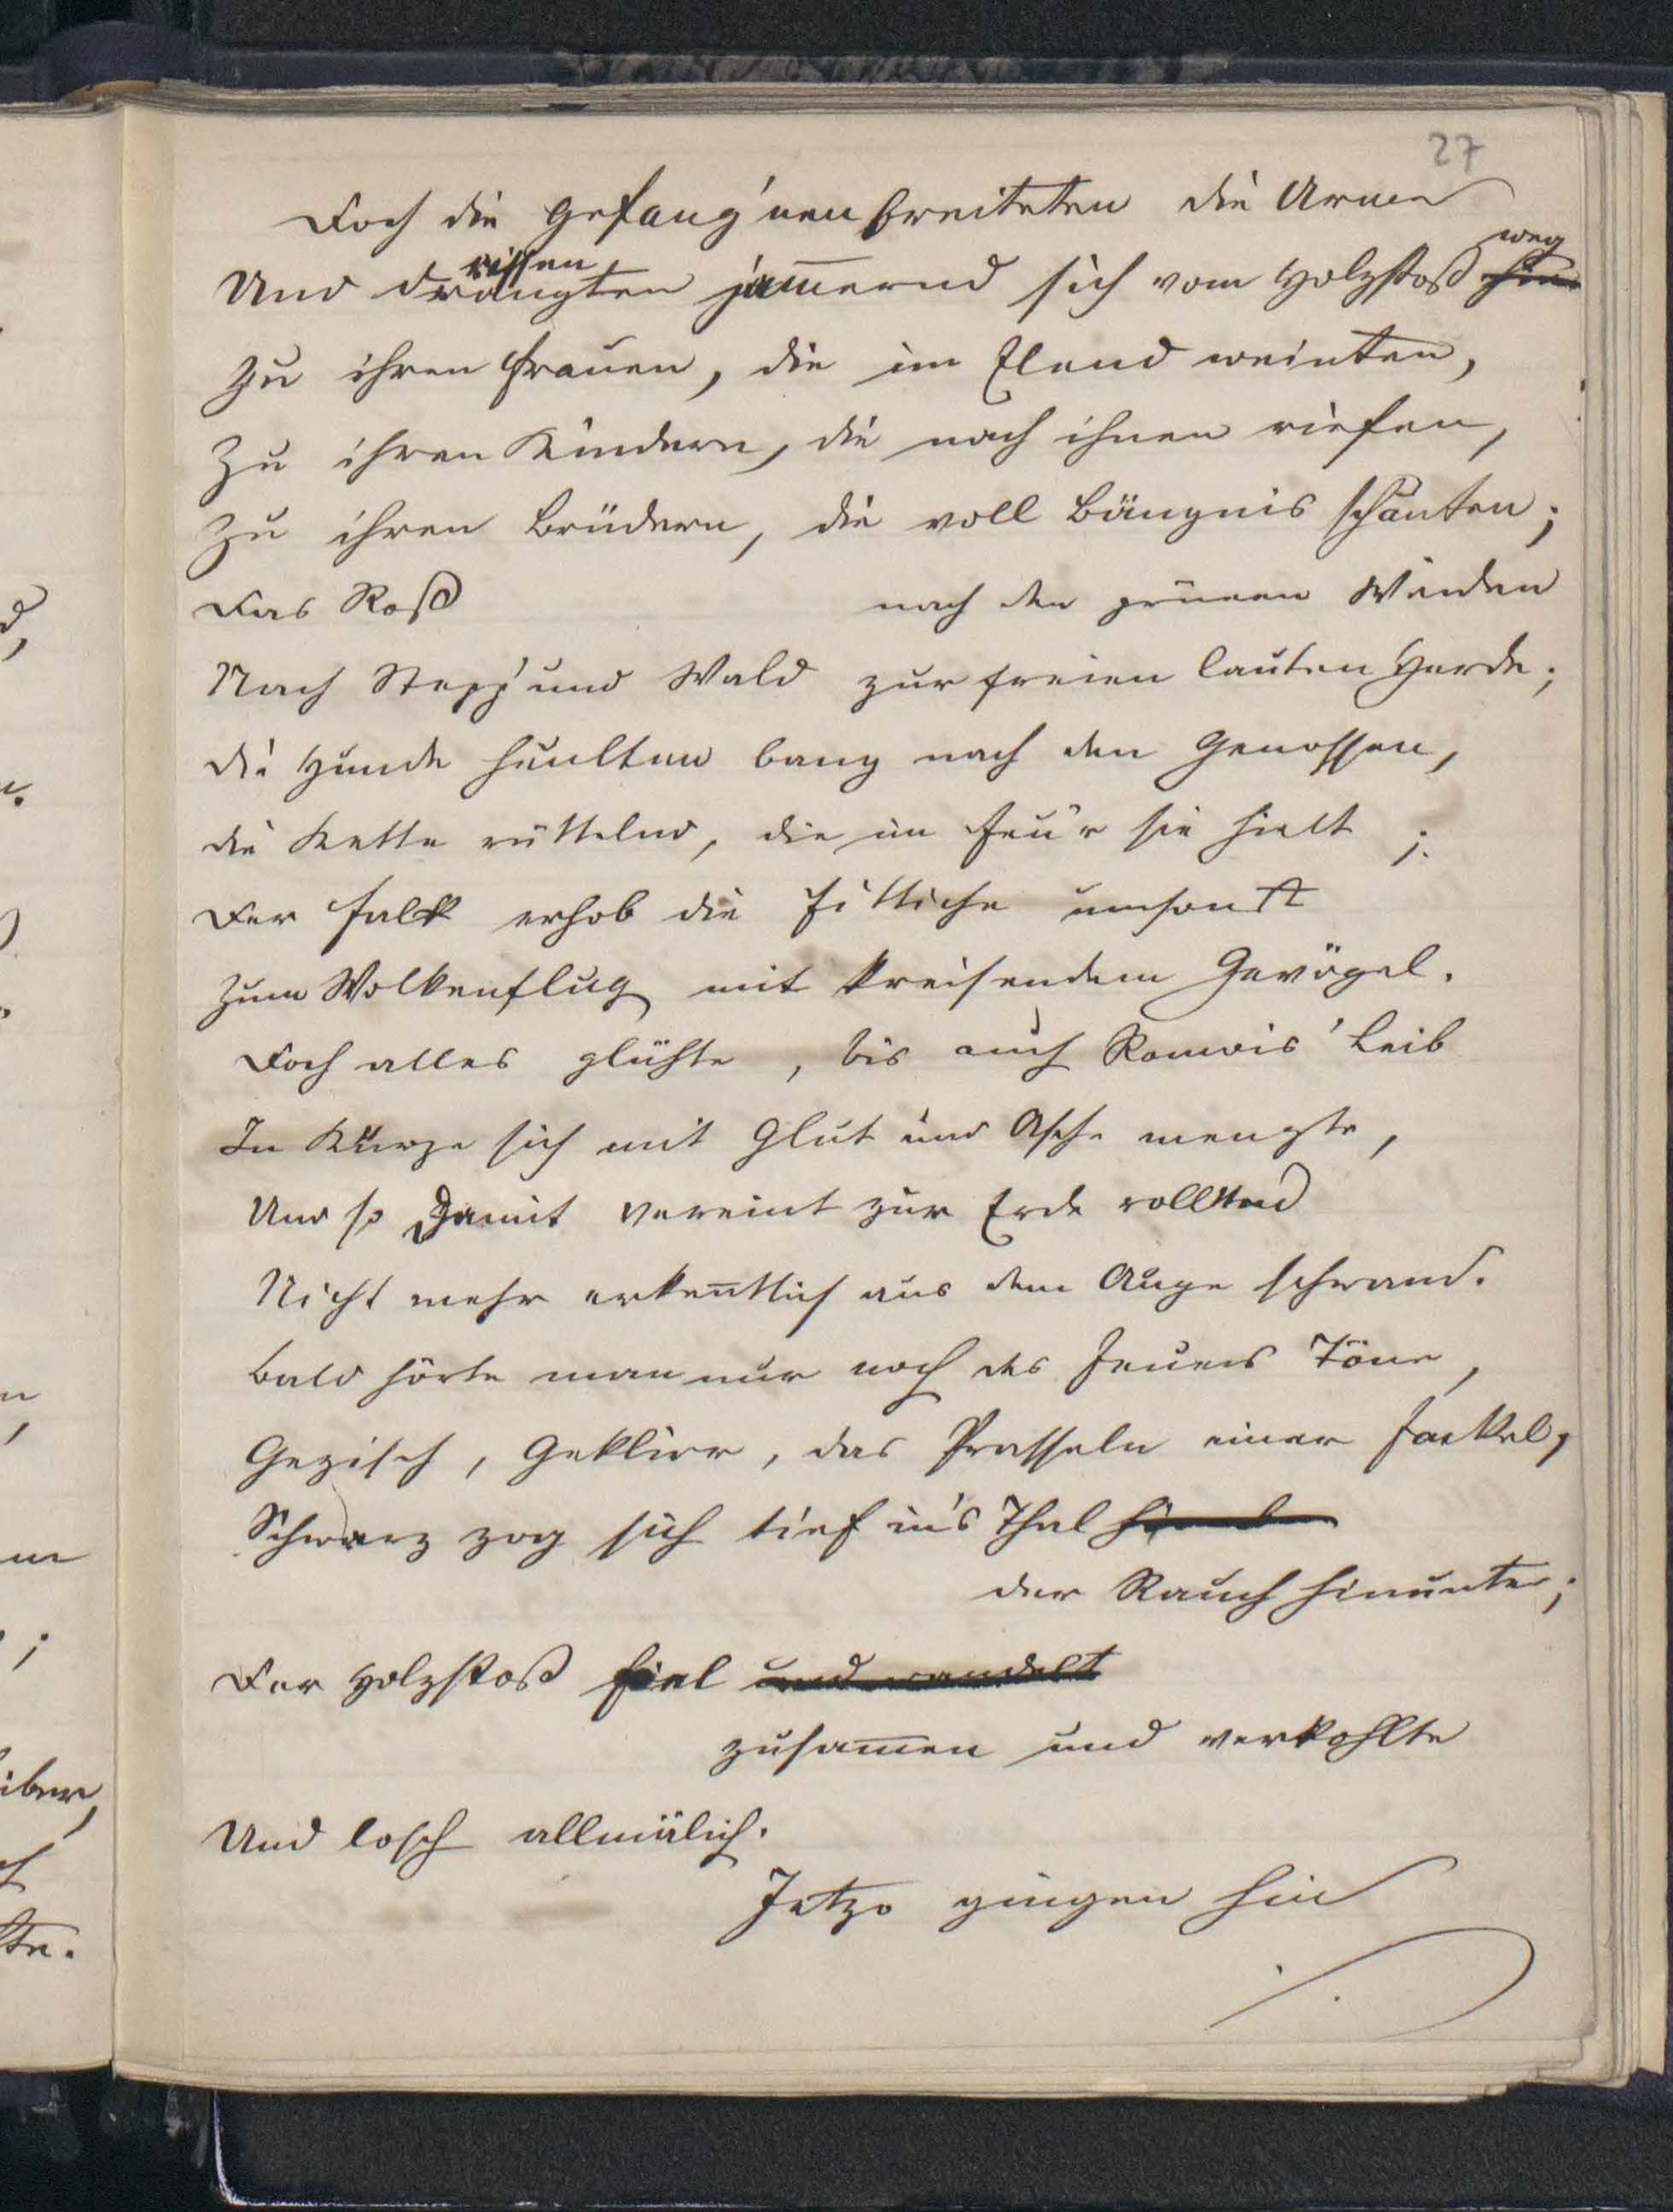 27
Doch die Gefang'nen breiteten die Arme
rissen weg
Und drängten jam̅ernd sich vom Holzstoß hin
Zu ihren Frauen, die im Elend weinten,
Zu ihren Kindern, die nach ihnen riefen,
Zu ihren Brüdern, die voll Bängnis schauten;
Das Roß nach den grünen Weiden
Nach Stepp' und Wald zur freien lauten Herde;
die Hunde heulten bang nach den Genossen,
die Kette rüttelnd, die im Feu'r sie hielt;
Der Falk erhob die Fittiche umsonst
Zum Wolkenflug mit kreisendem Gevögel.
Doch alles glühte, bis auch Romois' Leib
In Kürze sich mit Glut und Asche mengte,
Und so damit vereint zur Erde rollend
Nicht mehr erken̅tlich aus dem Auge schwand.
Bald hörte man nur noch des Feuers Töne,
Gezisch, Geklirr, das Prasseln einer Fackel,
Schwarz zog sich tief in's Thal
der Rauch hinunter;
Der Holzstoß fiel und wandelt
zusam̅en und verkohlte
Und losch allmälich.
Jetzo gingen hin